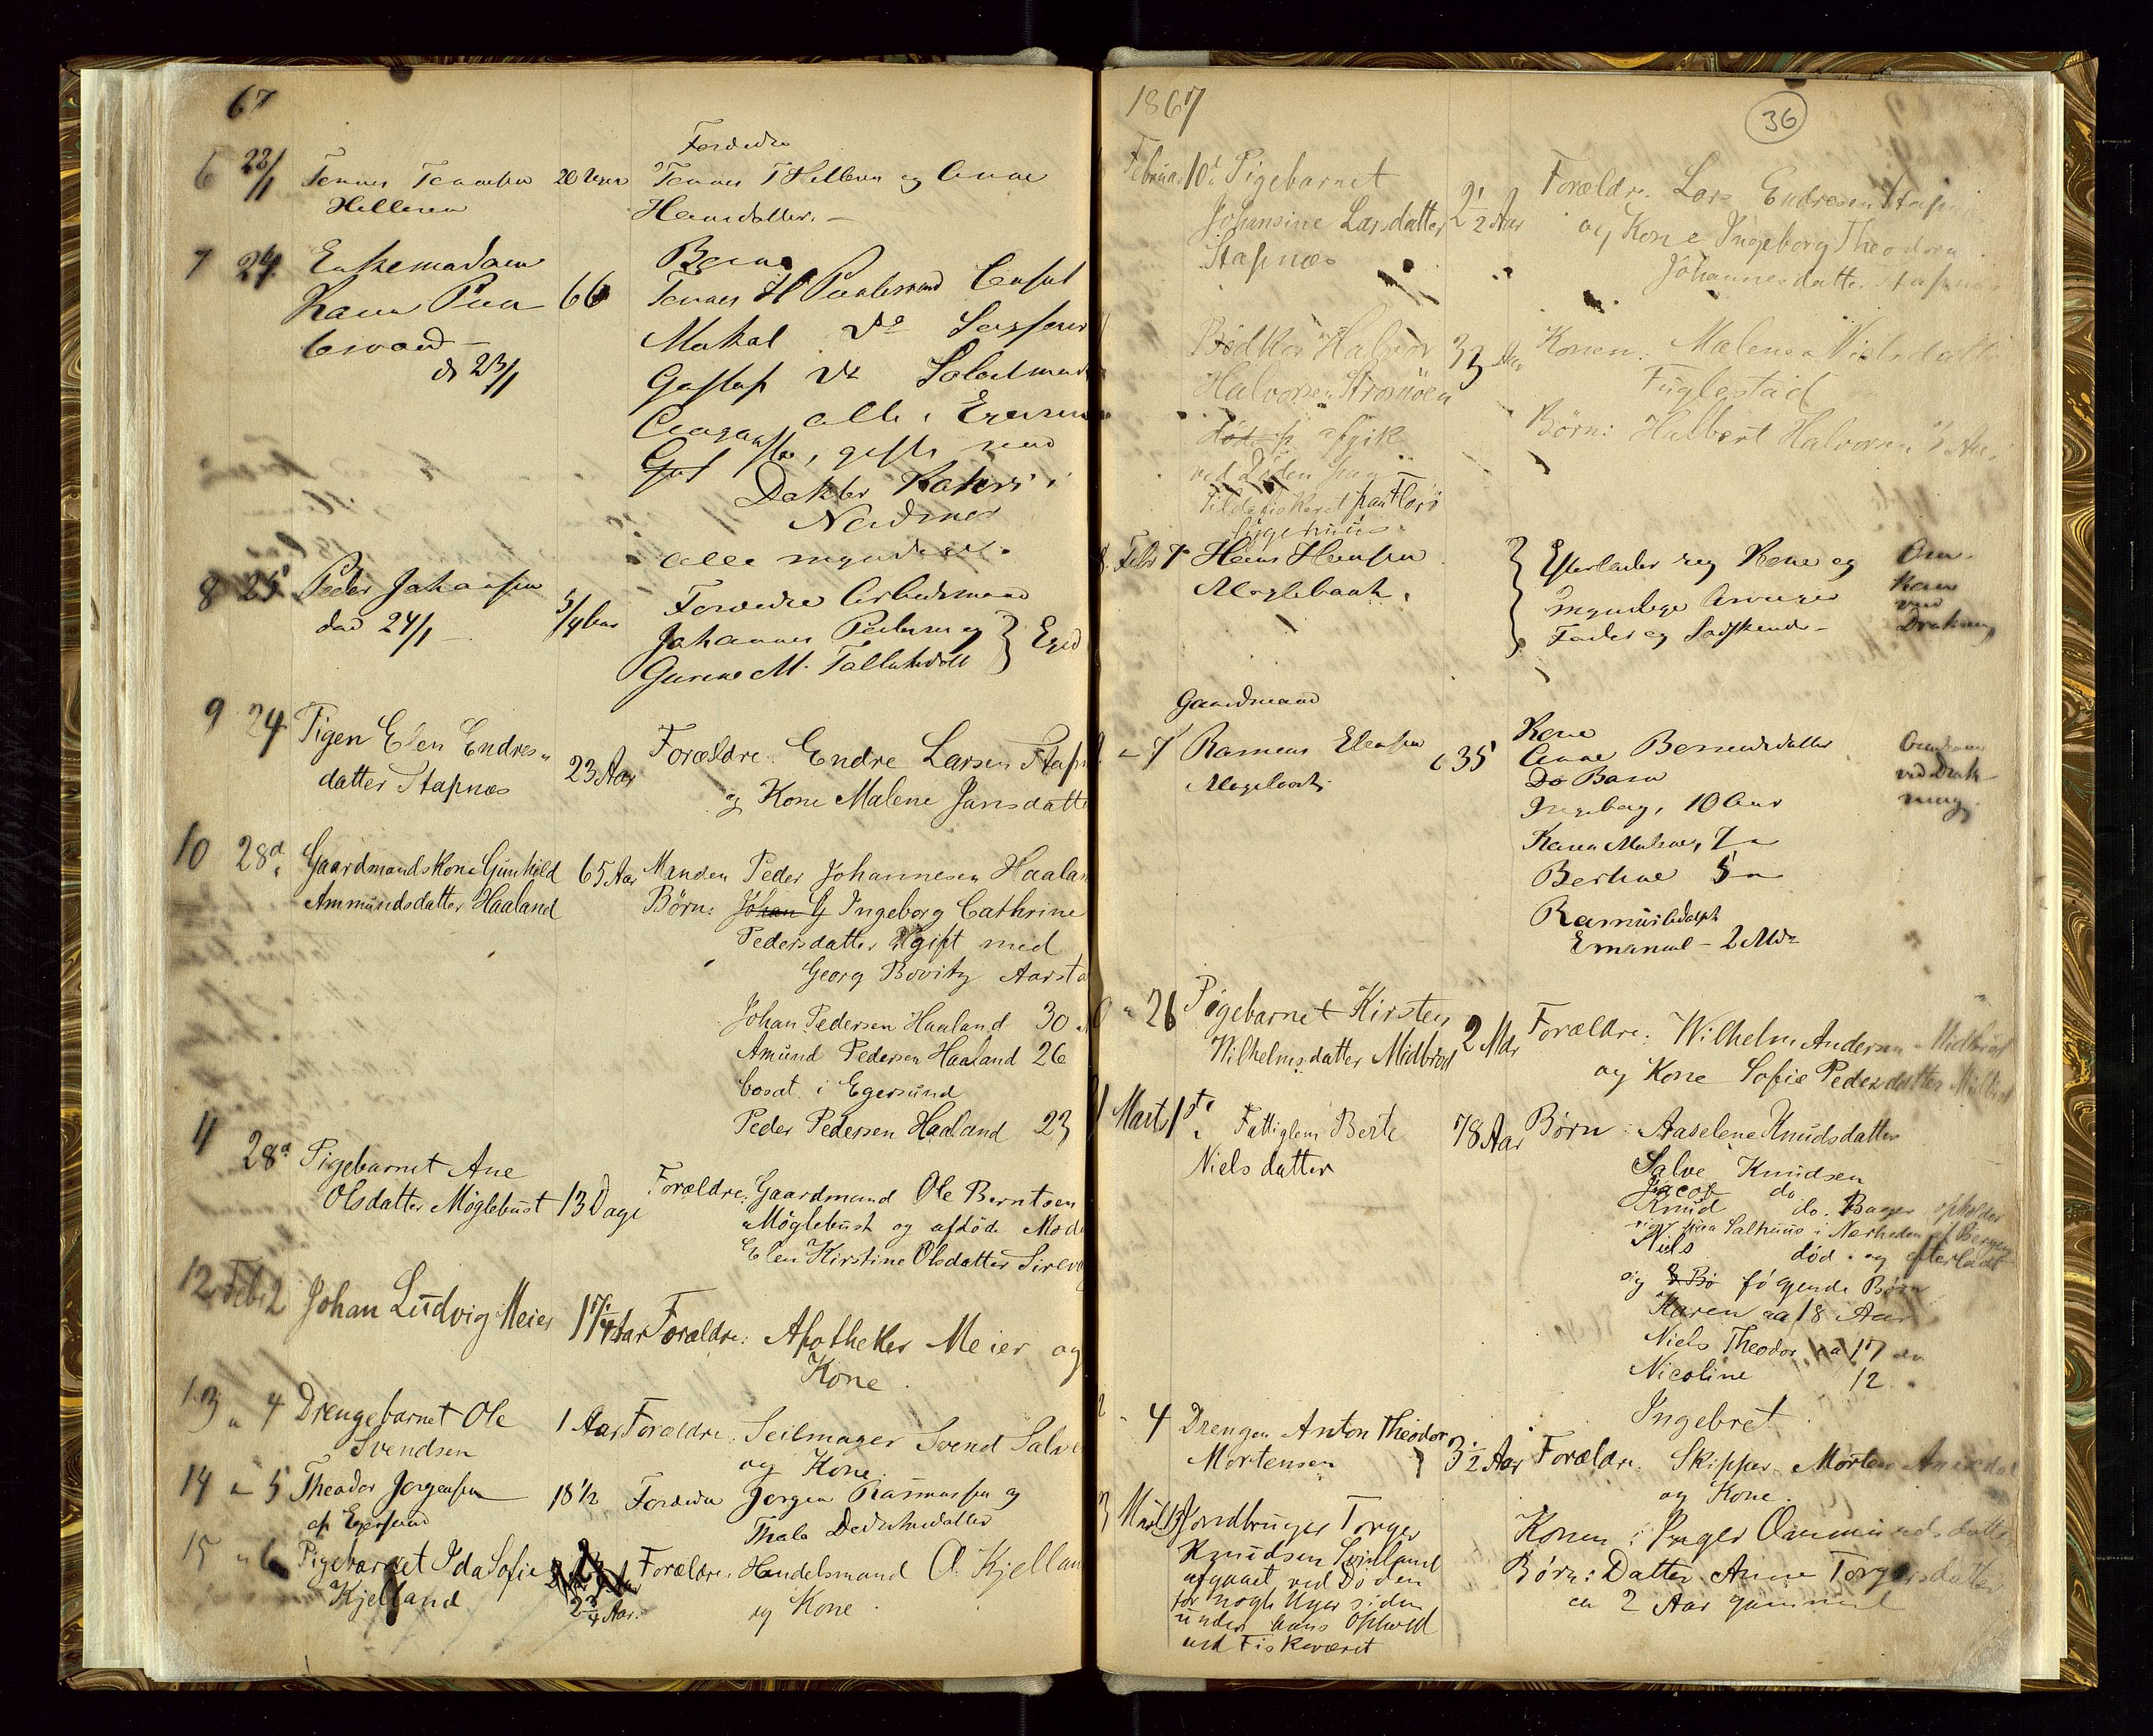 67
6 22/1 Tønnes Tønnesen
Hellesen
Forældre
Tønnes T Hellesen og Anne
Hansdatter. –
7 24 Enkemadam
66
d 23/1
Børn
Tønnes H Puntervold Consul
alle i
gift med
Doktor
i
alle myndige.
8 25 Peder Johansen
død 24/1
3/4 Aar
Forældre Arbeidsmand
Johannes Pedersen og
9 24 Pigen Elen Endres-
datter Stapnæs
23 Aar
Forældre: Endre Larsen Stapn
og Kone Malene Jansdatte
10 28d Gaardmandskone Gunhild
Ammundsdatter Haaland
65 Aar
Manden Peder Johannesen Haalan
Børn: Johan G Ingeborg Cathrine
Pedersdatter gift med
Georg Bovitz Aarsta
Johan Pedersen Haaland 30
Amund Pedersen Haaland 26
bosat i Egersund
Peder Pedersen Haaland 23
11 28d Pigebarnet Ane
Olsdatter Møglebust
13 Dage
Forældre: Gaardmand Ole Berntsen
Møglebust og afdøde Mode
Elen Kirstine Olsdatter Sirev
12 Feb: 2 Johan Ludvig Meier
Forældre: Apotheker Meier og
Kone
13 " 4 Drengebarnet Ole
Svendsen
1 Aar
Forældre: Seilmager Svend Salve
og Kone.
14 " 5 Theodor Jørgensen
af Egersund
18 1/2
Forældre Jørgen Rasmussen og
Thala
15 " 6 Pigebarnet Ida Sofie
Kjelland
2 3/4 Aar.
Forældre: Handelsmand O. Kjellan
og Kone
1867
36
Februar 10d Pigebarnet
Johansine Larsdatter
Stapnæs
2 1/2 Aar
Forældre: Lars Endresen Stapnæs
og Kone Ingeborg Theodora
Johannesdatter Stapnæs
Bødker Halvor
Halvorsen
33 Aar
døde p afgik
ved Døden paa
Sildefiskeriet paa Florø
Sygehuus.
Konen: Malene Nielsdatter
Fuglestad
Børn: Halbert Halvorsen
8. Febr 7 Hans Hansen
Møglebust.
Efterlader sig Kone og
myndige Arvinger
Fader og Sødskende –
Om-
kom
ved
Drukning
Gaardmand
" 7 Rasmus Elensen
Møglebust
c 35
Kone
Anne Berentsdatter
Do Børn
Ingeborg, 10 Aar
Karen Malene, 7 "
Berthine 5 "
Rasmus Adolph
Emanuel – 2 Mdr
Omkom
ved Druk-
ning.
" 26 Pigebarnet Kirsten
Wilhelmsdatter Midbrød
2 Mdr
Forældre: Wilhelm Andersen Midbrød
og Kone Sofie Pedersdatter Midbrød
Marts 1ste Fattiglem Berte
Nielsdatter
78 Aar
Børn: Aaselene Knudsdatter
Salve Knudsen
Jacob do
Knud do. Bager opholder
sig paa Salhuus i Nærheden af Bergen
Niels død og efterladt
sig 3 Bø følgende Børn
Karen aa 18 Aar
Niels Theodor aa 17 do
Nicoline 12 "
Ingebret
" 4 Drengen Anton Theodor
Mortensen
3 1/2 Aar
Forældre: Skipper Morten
og Kone.
Marts 13 Jordbruger Torger
Knudsen Svinland
afgaaet ved Døden
for nogle Uger siden
under hans Ophold
ved Fiskeværet
Konen: Inger Ommundsdatter
Børn: Datter Anne Torgersdatter
ca 2 Aar gammel